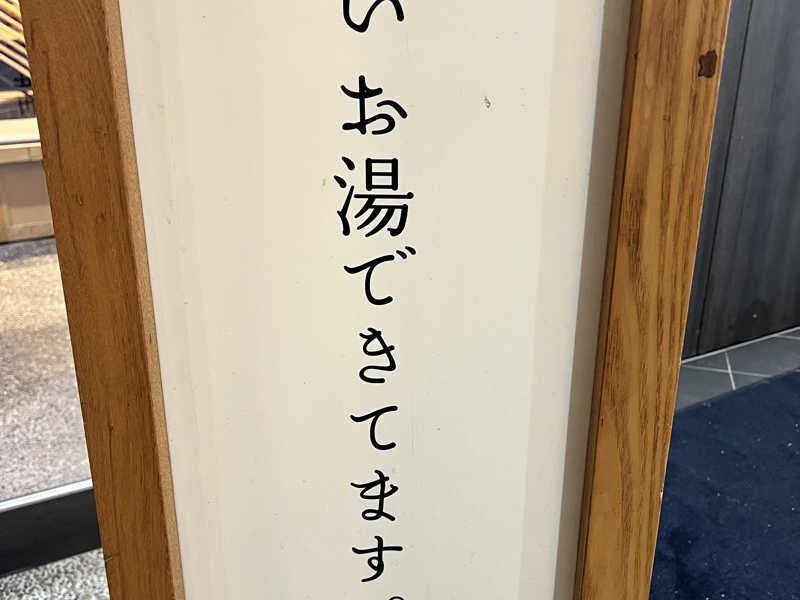 い お湯できてます。